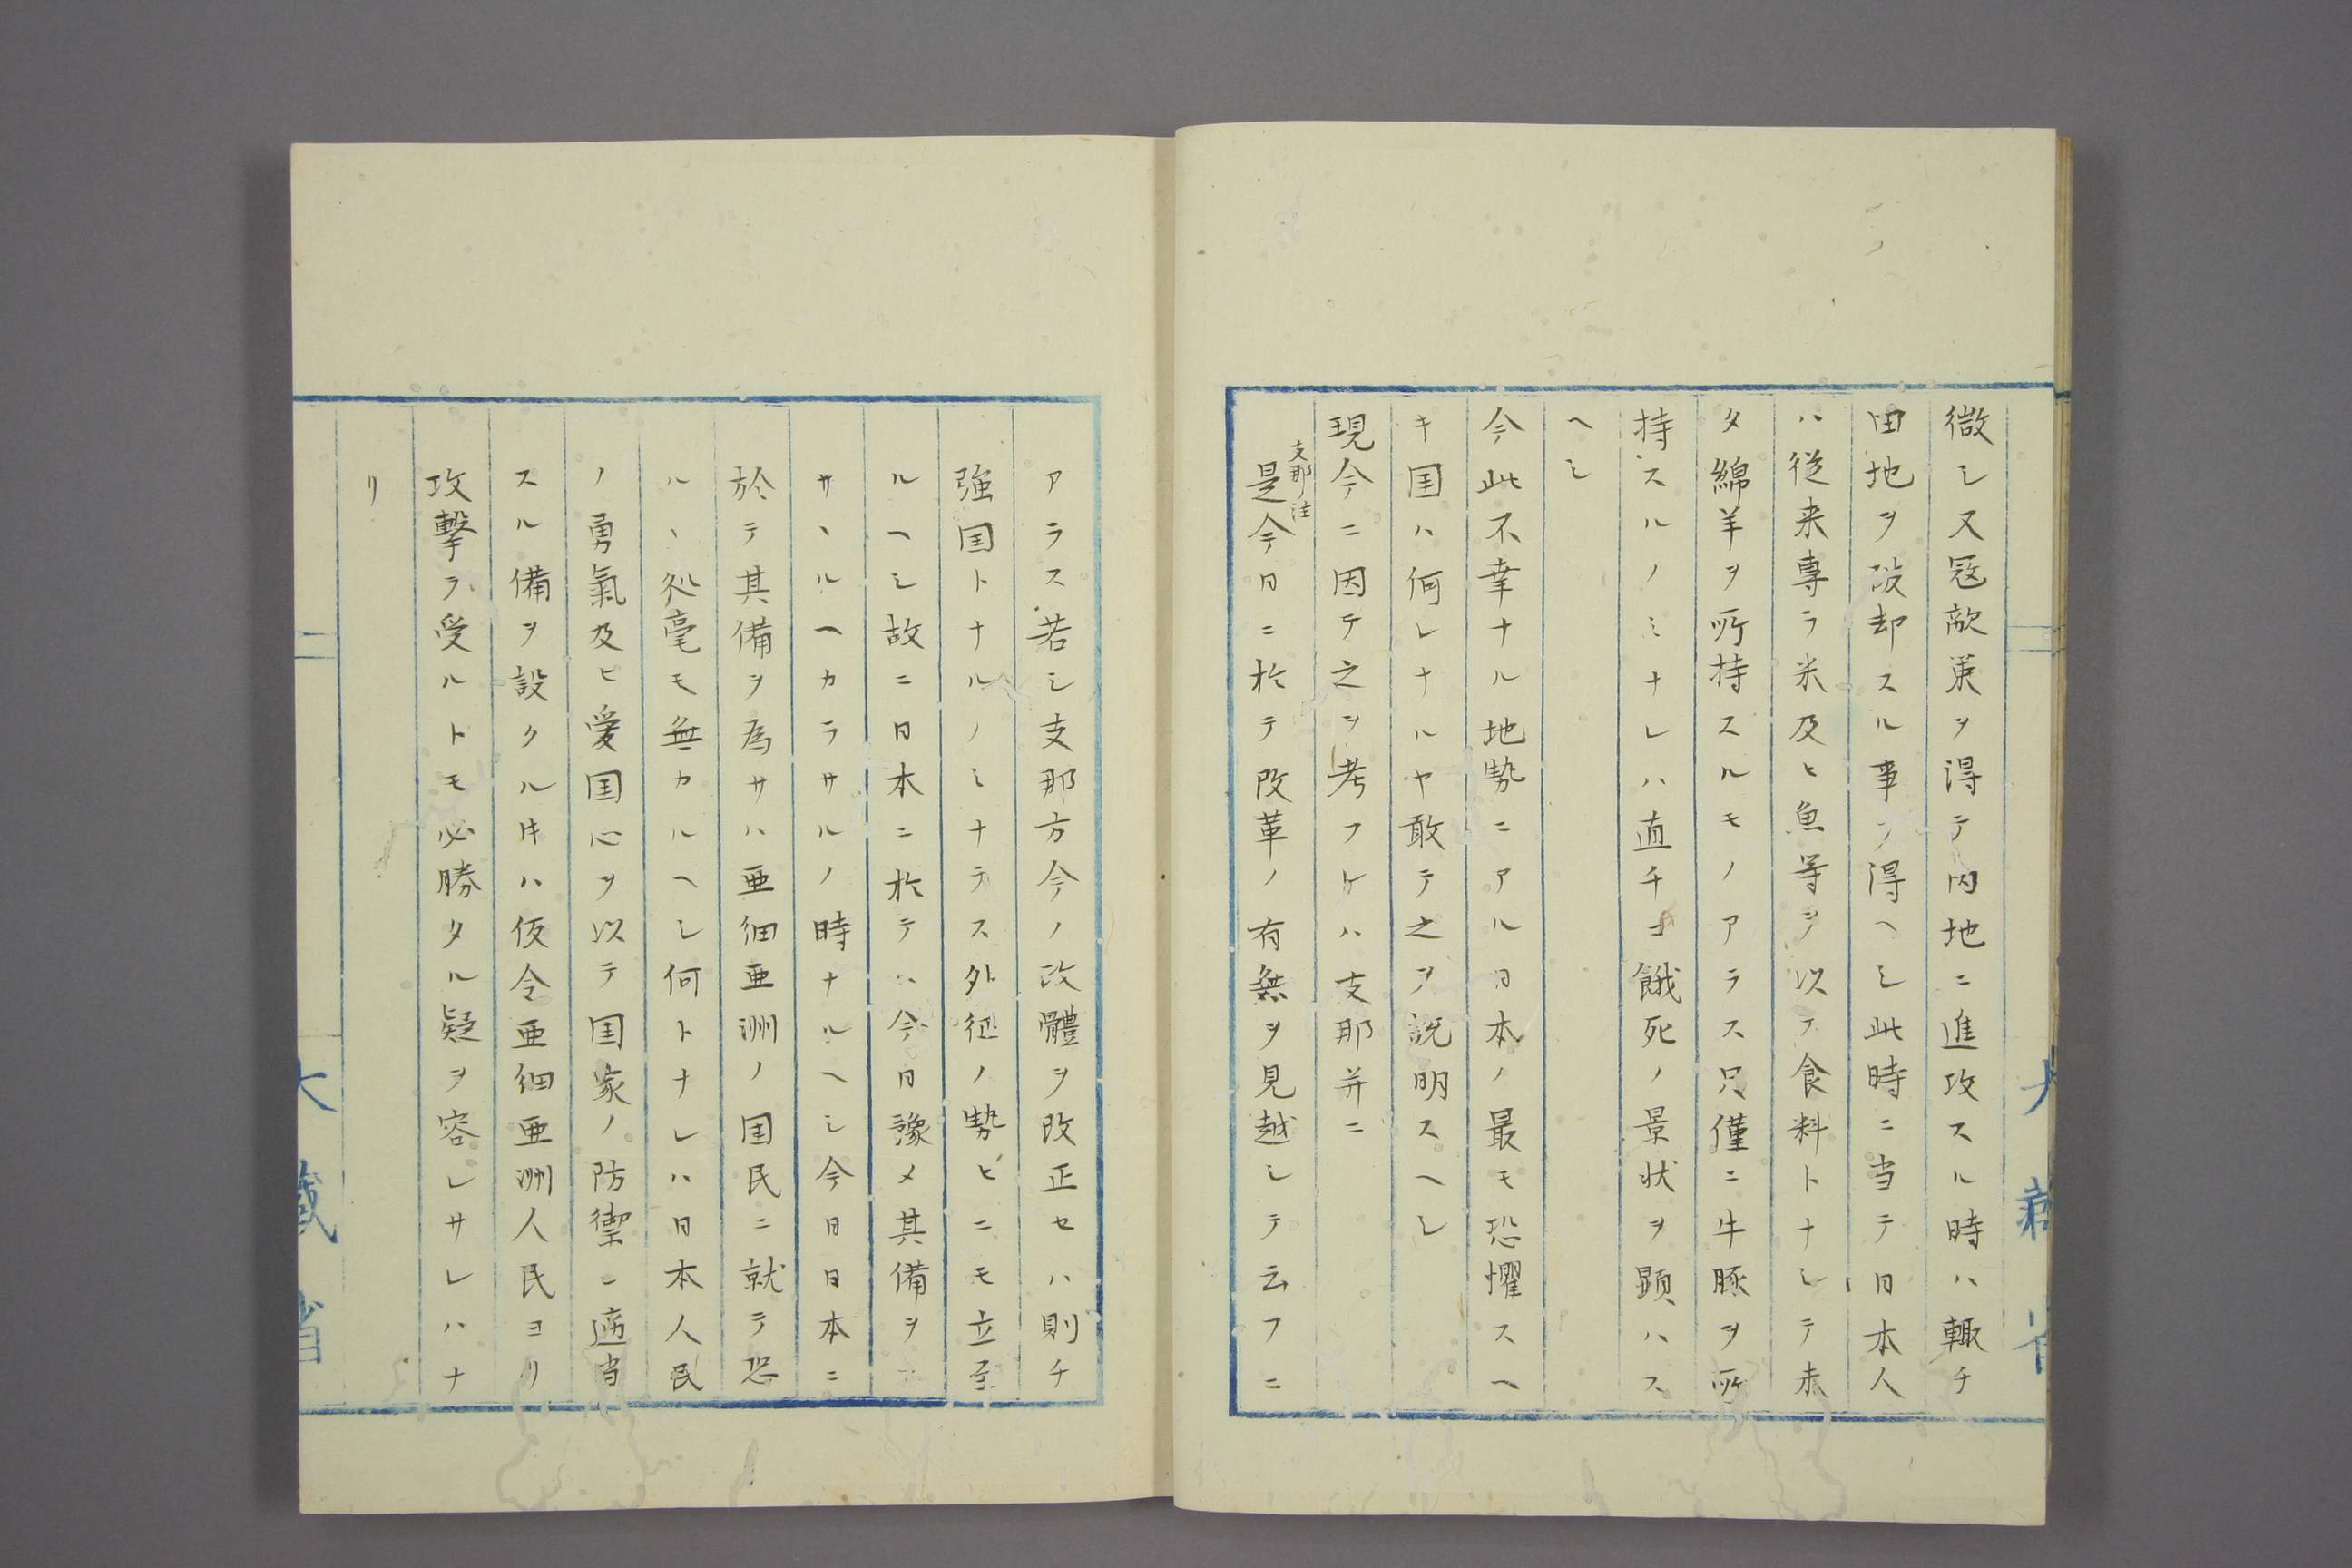 微シ又冦敵策ヲ得テ内地ニ進攻スル時ハ輙チ
田地ヲ毀却スル事ヲ得ヘシ此時ニ当テ日本人
ハ従来專ラ米及ヒ魚等ヲ以テ食料トナシテ未
タ綿羊ヲ所持スルモノアラス只僅ニ牛豚ヲ所
持スルノミナレハ直チニ餓死ノ景状ヲ顕ハス
ヘシ
今此不幸ナル地勢ニアル日本ノ最モ恐懼スヘ
キ国ハ何レナルヤ敢テ之ヲ説明スヘシ
現今ニ因テ之ヲ考フレハ支那并ニ
支那注
是今日ニ於テ改革ノ有無ヲ見越シテ云フニ
アラス若シ支那方今ノ政體ヲ改正セハ則チ
強国トナルノミナラス外征ノ勢ヒニモ立至
ルヘシ故ニ日本ニ於テハ今日豫メ其備ヲ
サヽルヘカラサルノ時ナルヘシ今日日本ニ
於テ其備ヲ為サハ亜細亜洲ノ国民ニ就テ恐
ルヽ処毫モ無カルヘシ何トナレハ日本人民
ノ勇氣及ヒ愛国心ヲ以テ国家ノ防禦ニ適当
スル備ヲ設クル時ハ仮令亜細亜洲人民ヨリ
攻撃ヲ受ルトモ必勝タル疑ヲ容レサレハナ
リ
大藏省